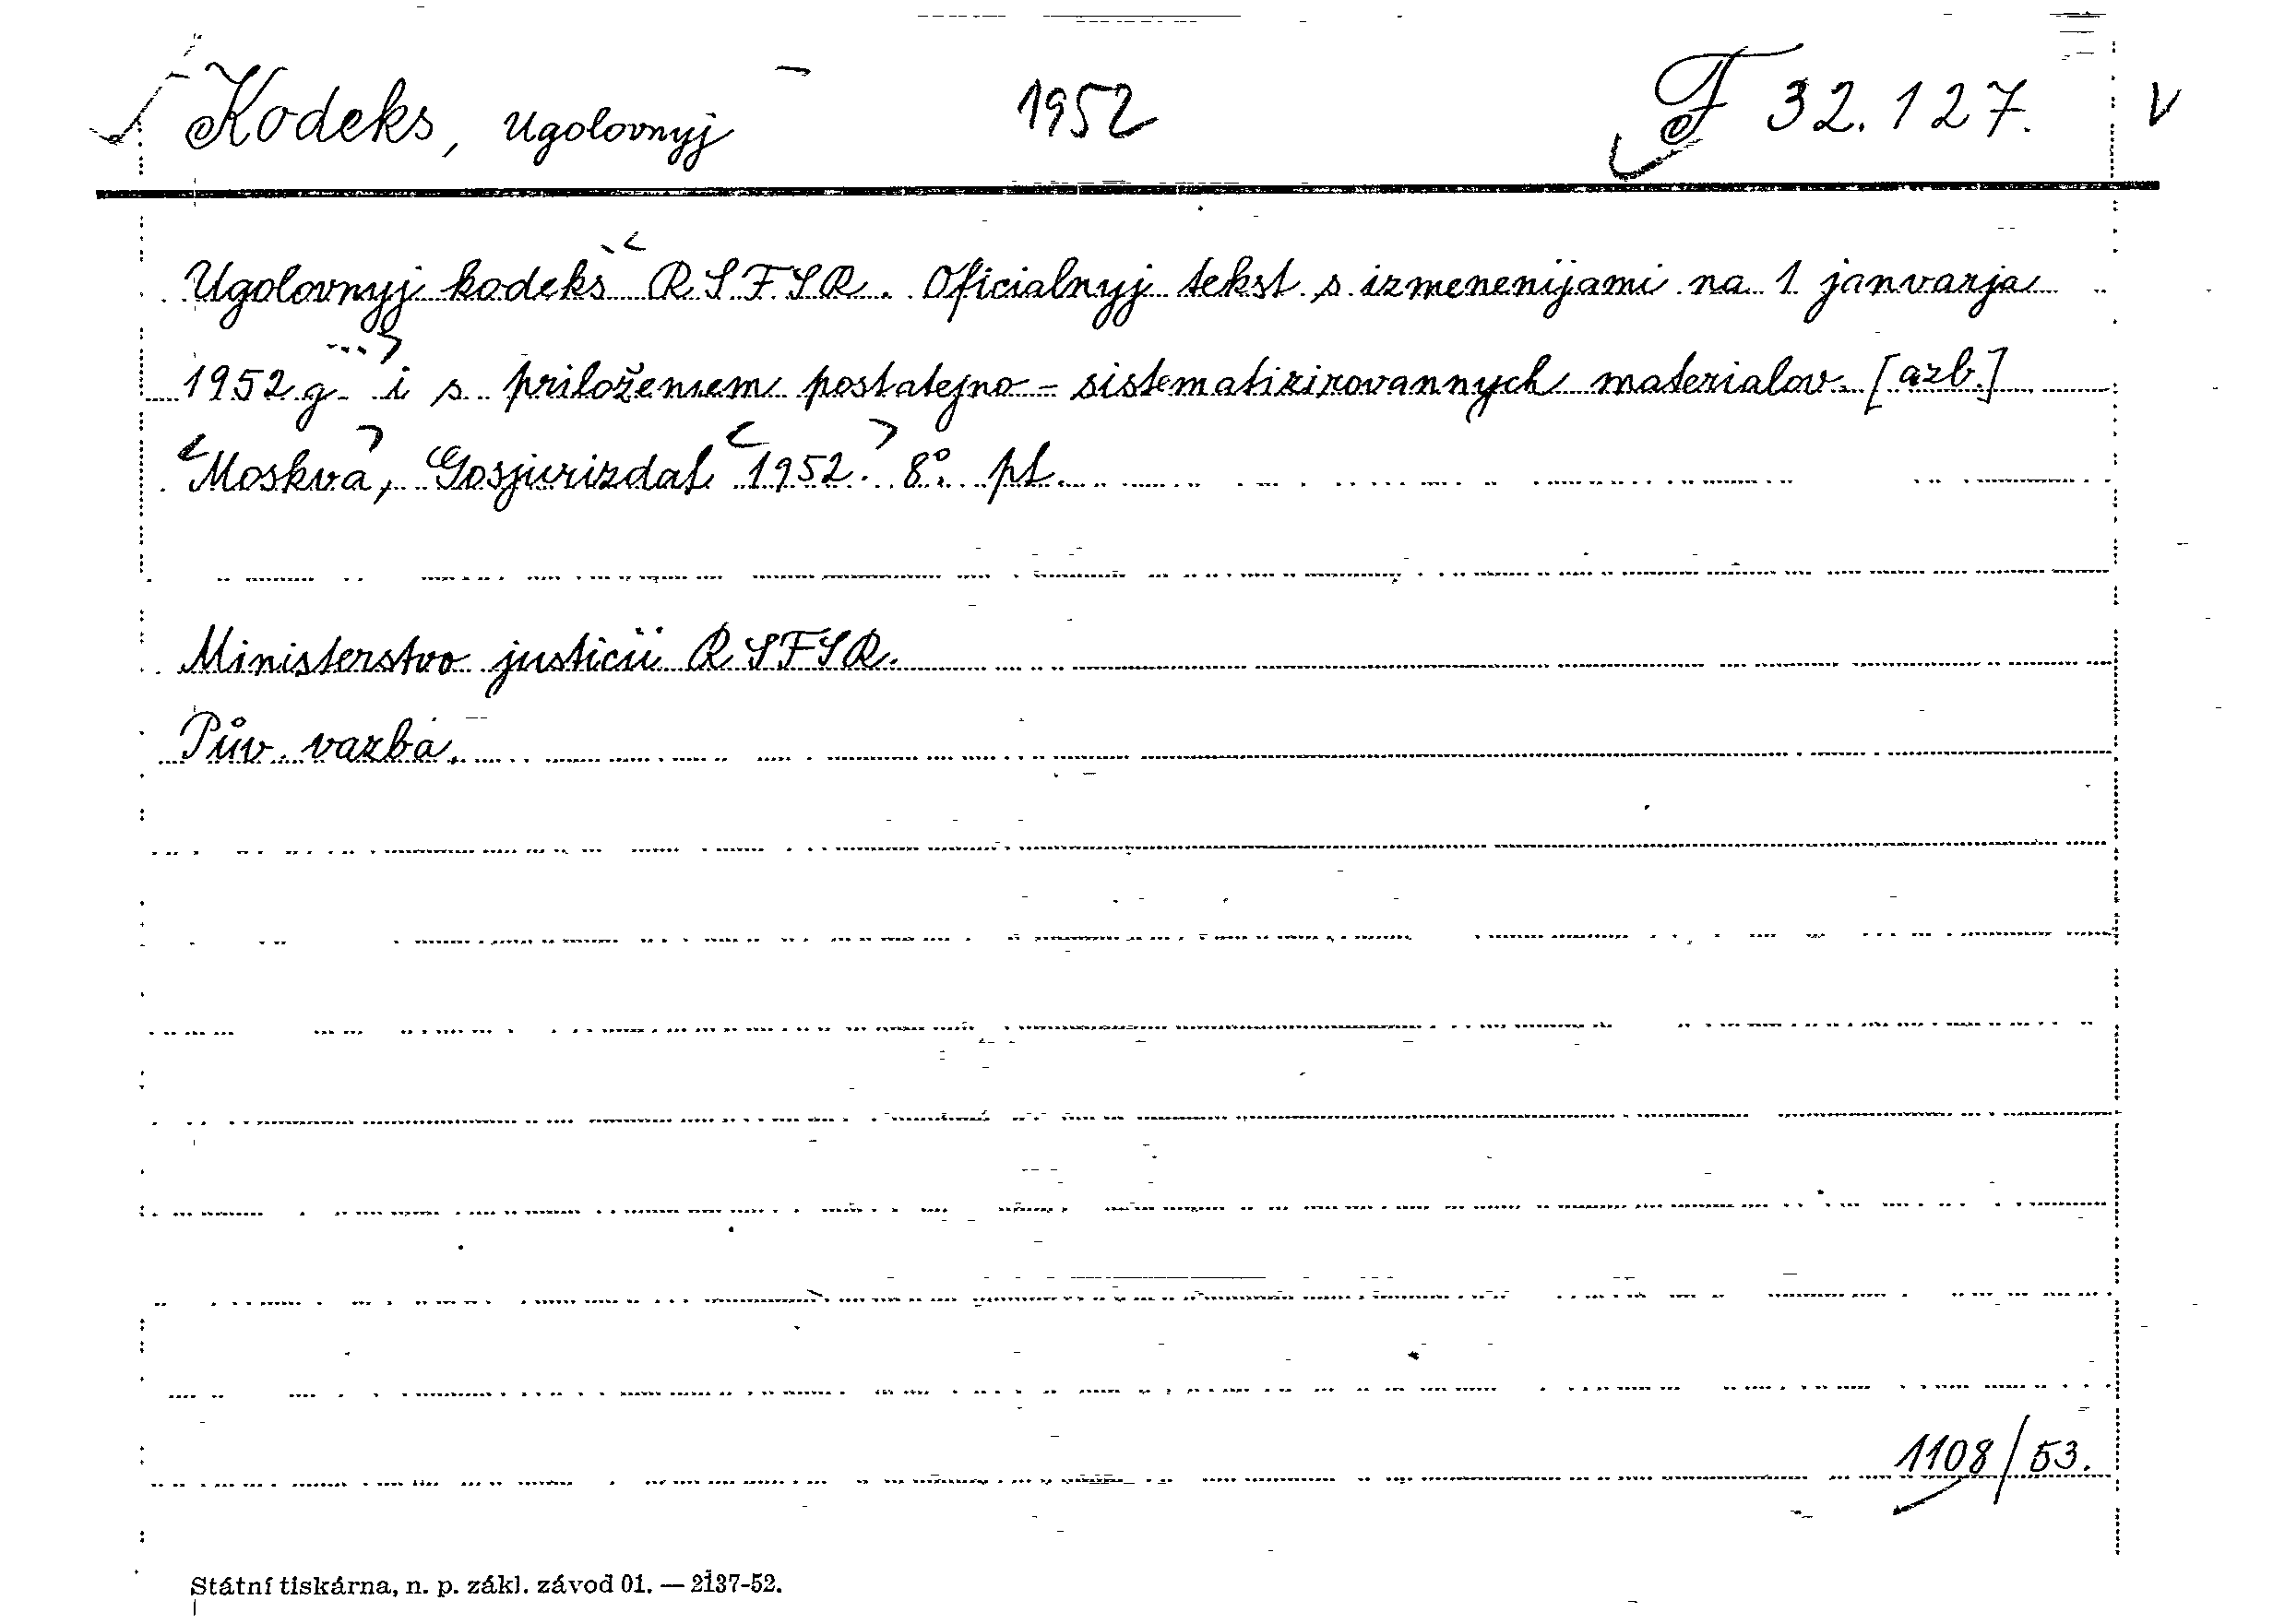 Kodeks, Ugolovnyj 1952 F 32.127. V
Ugolovnyj kodeks RSFSR. Oficialnyj tekst s izmenenijami na 1 janvarja
1952 g. i s priloženiem postatejno-sistematizirovannych materialov. [azb.]
Moskva, Gosjurizdat 1952. 8° pl.
Ministerstvo justicii RSFSR.
Pův. vazba.
1108/53.
Státní tiskárna, n. p. zákl. závod 01. — 2137-52.